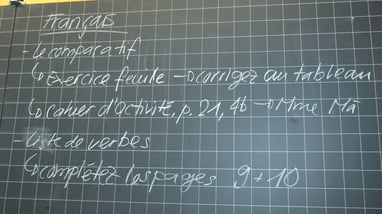 Français
- le comparatif
↳ Exercice feuille → corrigez au tableau
↳ cahier d'activité, p. 21, 4b → Mme Mà
- liste de verbes
↳ complétez les pages 9 + 10